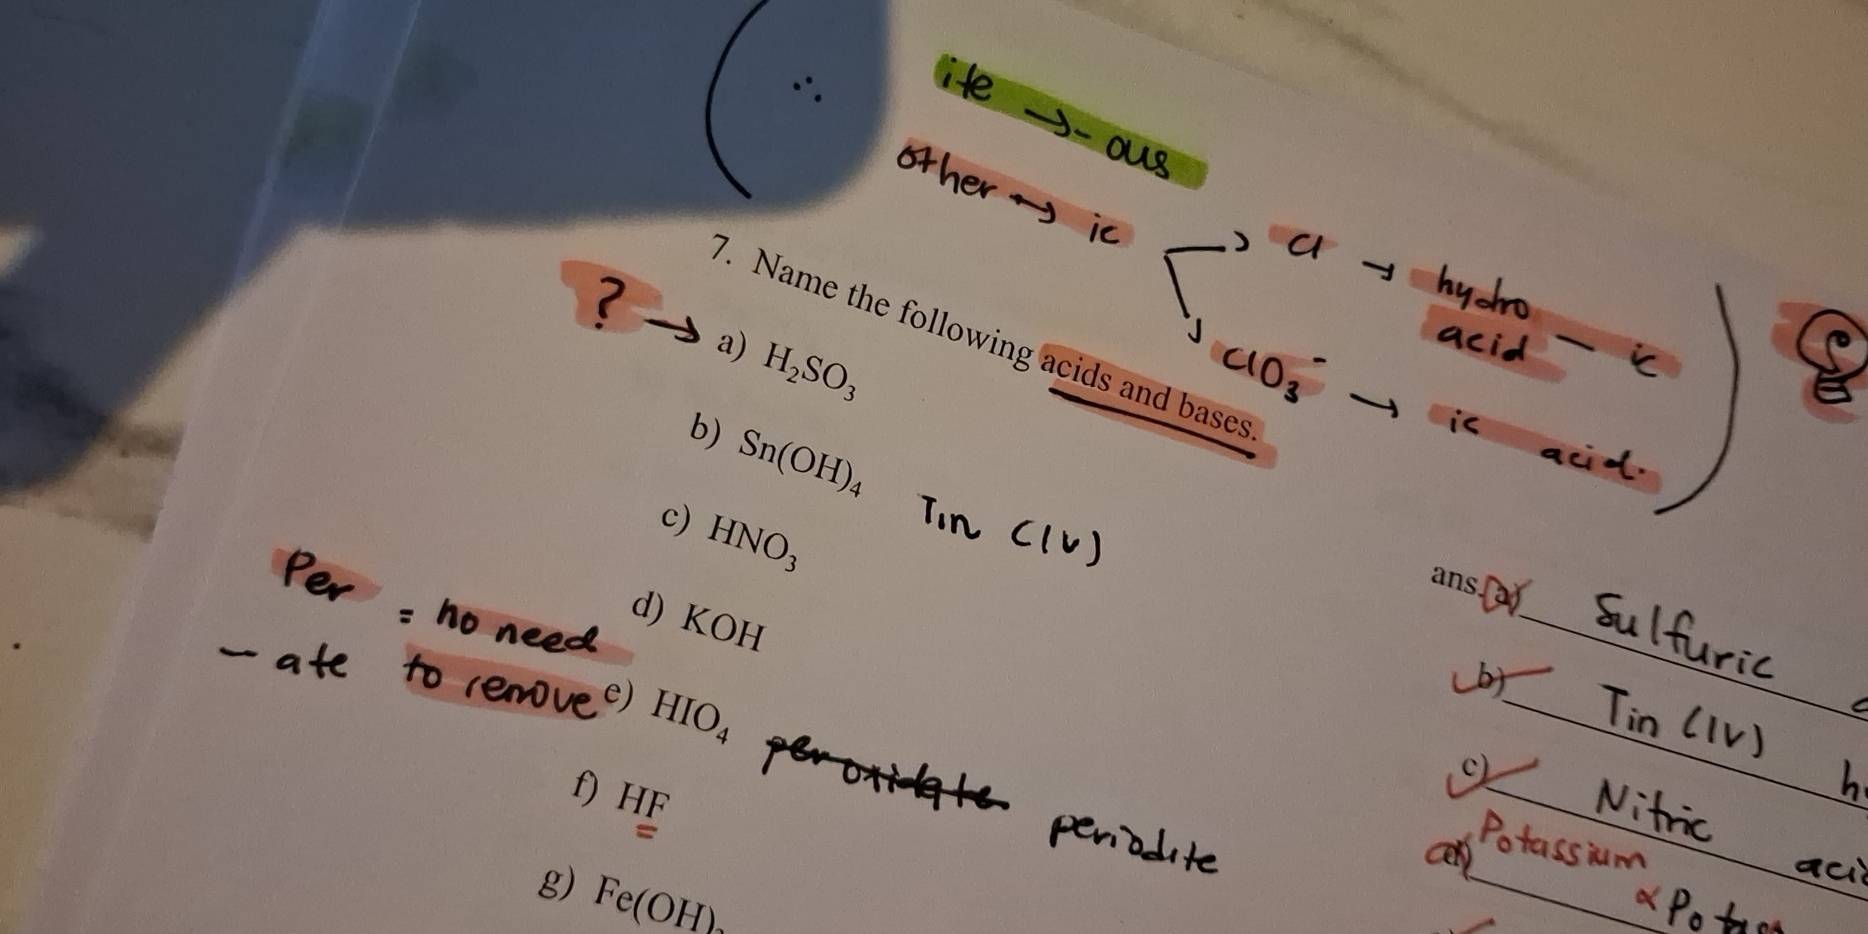 ∴
ite → -ous
other → ic
→ Cl → hydro - ic
acid
→ ClO₃⁻ → ic acid.
7. Name the following acids and bases.
? → a) H₂SO₃
b) Sn(OH)₄ Tin (IV)
c) HNO₃
d) KOH
Per = no need
-ate to remove
e) HIO₄ periodite
f) HF
g) Fe(OH)
ans. a) Sulfuric
b) Tin (IV)
c) Nitric
d) Potassium